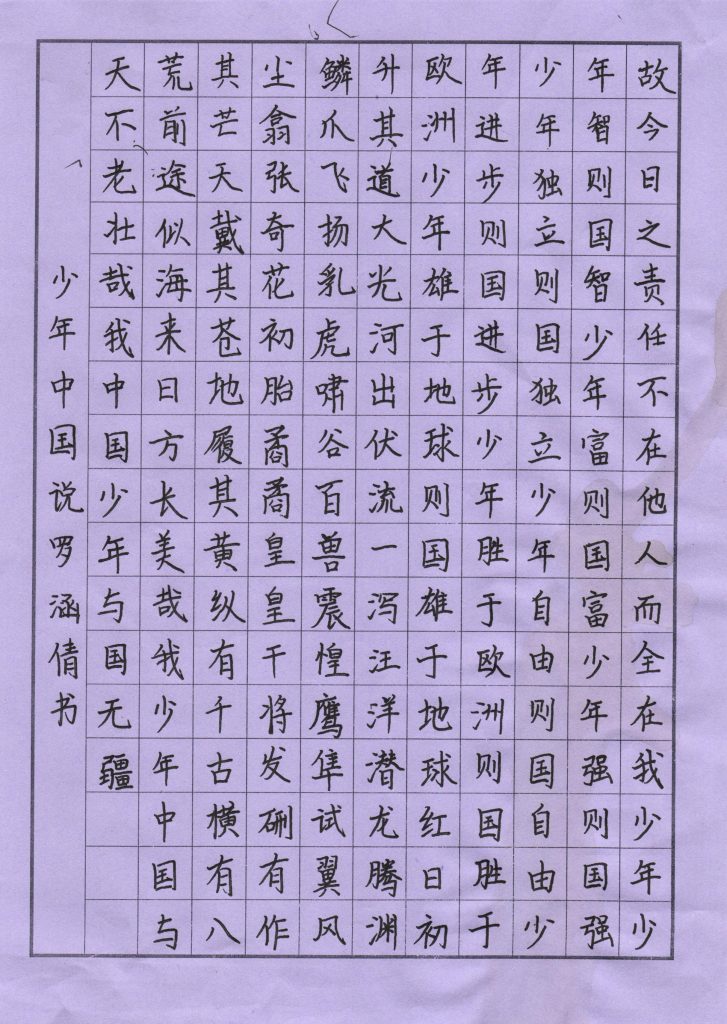 故今日之责任不在他人而全在我少年少
年智则国智少年富则国富少年强则国强
少年独立则国独立少年自由则国自由少
年进步则国进步少年胜于欧洲则国胜于
欧洲少年雄于地球则国雄于地球红日初
升其道大光河出伏流一泻汪洋潜龙腾渊
鳞爪飞扬乳虎啸谷百兽震惶鹰隼试翼风
尘翕张奇花初胎矞矞皇皇干将发硎有作
其芒天戴其苍地履其黄纵有千古横有八
荒前途似海来日方长美哉我少年中国与
天不老壮哉我中国少年与国无疆
少年中国说罗涵倩书